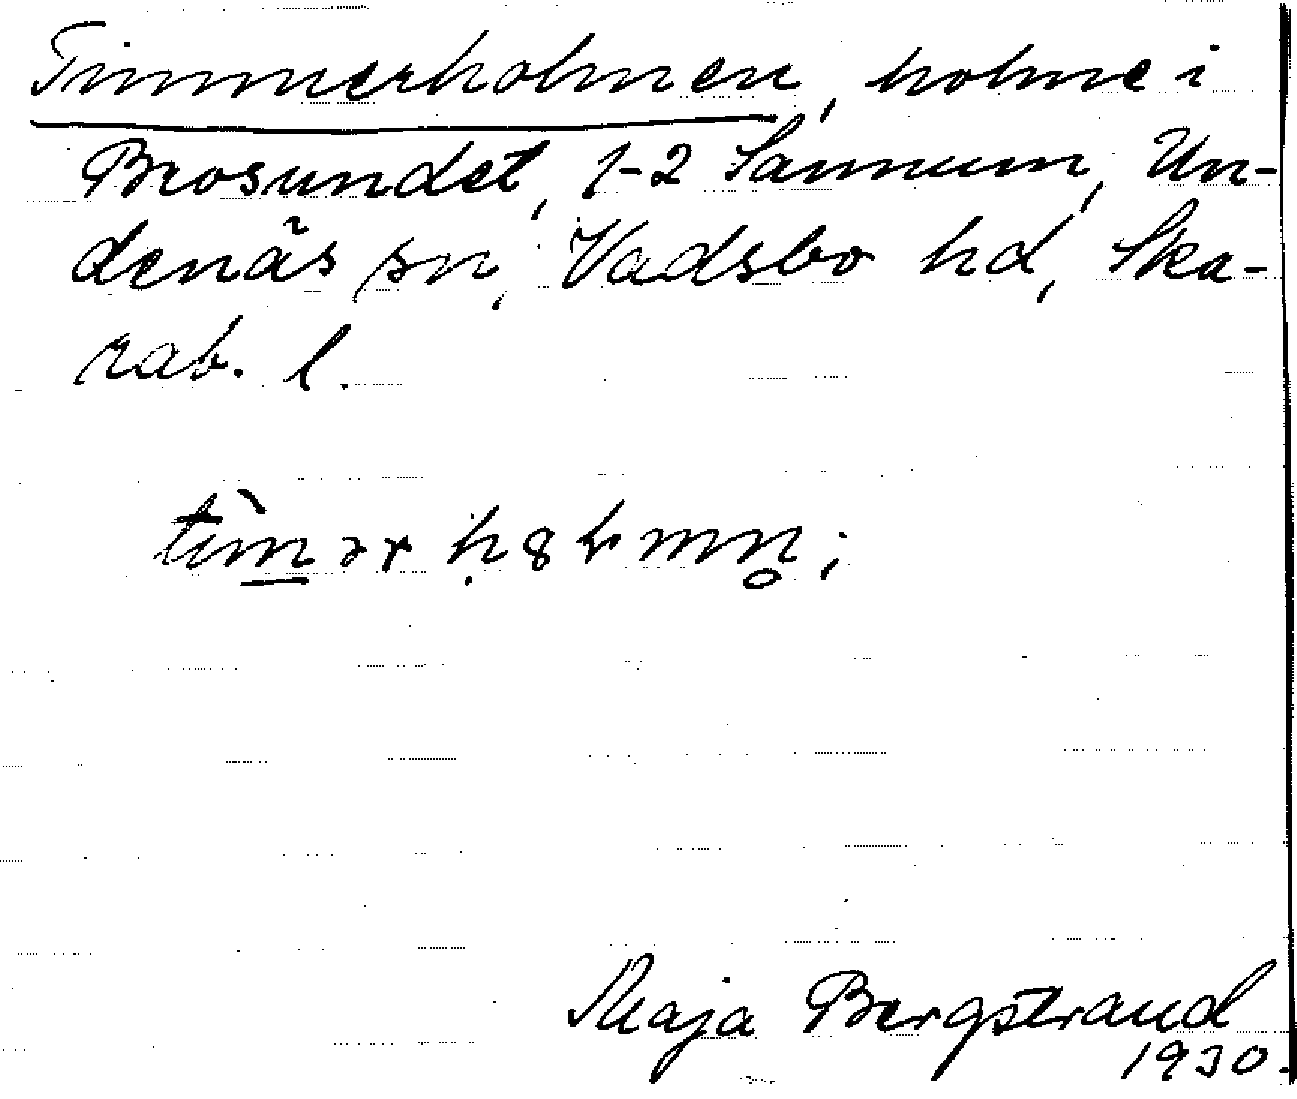 Timmerholmen, holme i
Brosundet, 1-2 Sannum, Un-
denäs sn, Vadsbo hd, Ska-
rab. l.
Maja Bergstrand
1930.